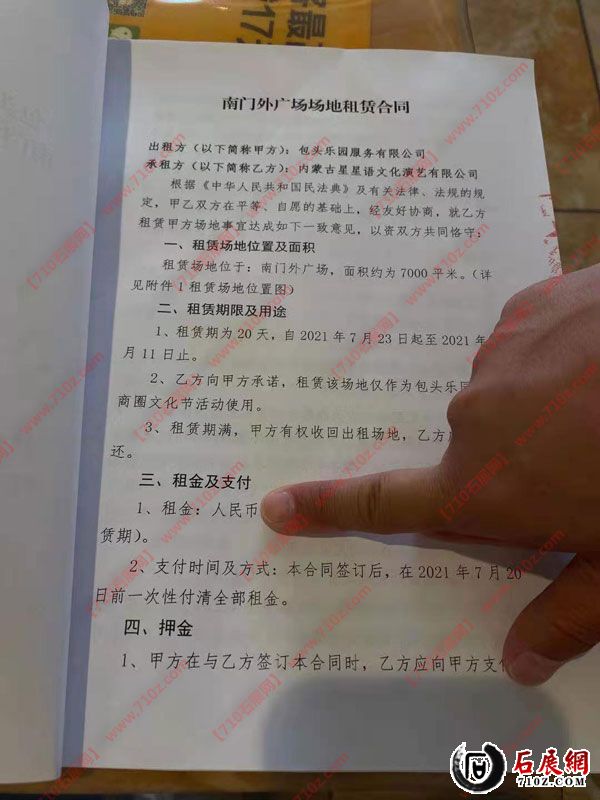 南门外广场场地租赁合同
出租方（以下简称甲方）：包头乐园服务有限公司
承租方（以下简称乙方）：内蒙古星星语文化演艺有限公司
根据《中华人民共和国民法典》及有关法律、法规的规
定，甲乙双方在平等、自愿的基础上，经友好协商，就乙方
租赁甲方场地事宜达成如下一致意见，以资双方共同恪守：
一、租赁场地位置及面积
租赁场地位于：南门外广场，面积约为7000平米。（详
见附件1租赁场地位置图）
二、租赁期限及用途
1、租赁期为20天，自2021年7月23日起至2021年
月11日止。
2、乙方向甲方承诺，租赁该场地仅作为包头乐园
商圈文化节活动使用。
3、租赁期满，甲方有权收回出租场地，乙方
还。
三、租金及支付
1、租金：人民币
赁期）。
2、支付时间及方式：本合同签订后，在2021年7月20
日前一次性付清全部租金。
四、押金
1、甲方在与乙方签订本合同时，乙方应向甲方支付
石展网
【710石展网】www.710z.com